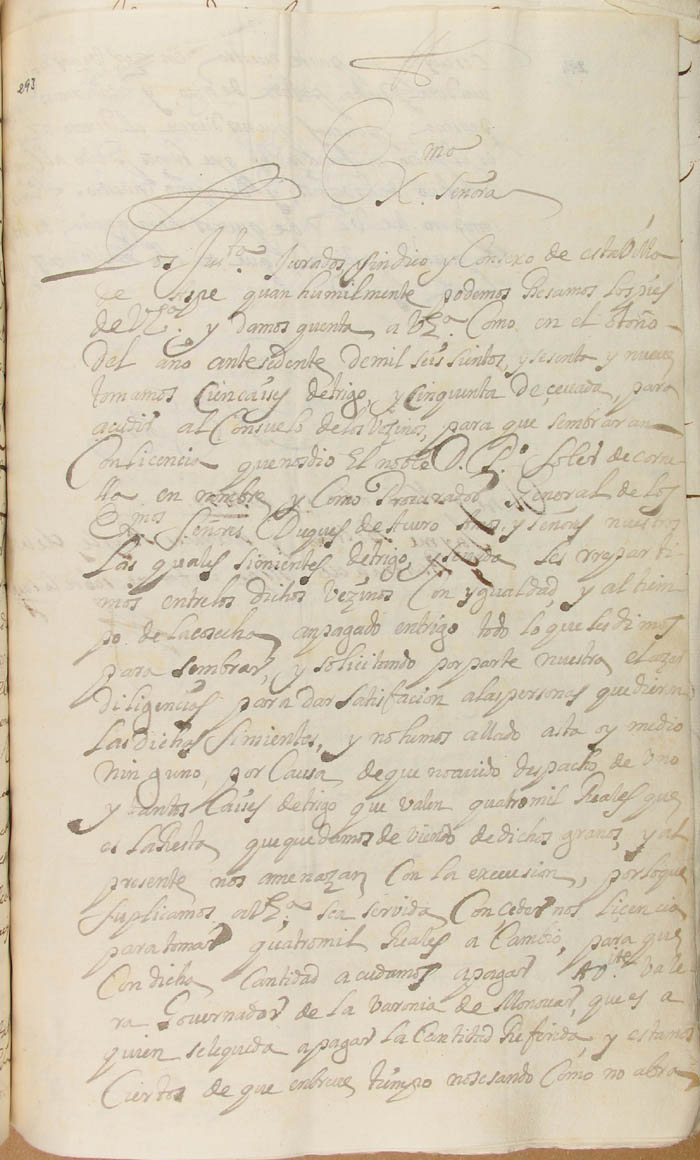 293
Ex.mo Señora
Los Jus.ta Jurados sindico y Consexo de esta Villa
de Aspe quan humilmente podemos Besamos los pies
de V.Ex.a y Damos quenta, a V.Ex.a Como en el otoño
Del año antesedente de mil seis sientos, y sesenta y nueve
tomamos Cien caises de trigo, y Cinquenta De çevada, para
acudir al Consuelo de los Vezinos, para que sembraran
Con licencia que nos dio El noble D. P.o Soler de corne
lla en nombre y Como Procurador General de los
Ex.mos Señores Duques de
Las quales simientes de trigo, y sevada les rreparti
mos entre los dichos Vezinos Con ygualdad y al tiem
po de la cosecha an pagado en trigo todo lo que les dimos
para sembrar, y solicitando por parte nuestra el azer
diligencias para dar satisfacion a las personas que dieron
Las dichas simientes, y no hemos allado asta oy medio
ninguno, por Causa de que no avido despacho de Uno
y tantos Caises de trigo que valen quatro mil Reales que
es la Resta que quedamos de viendo de dichos granos, y al
presente nos amenazan Con la execusion, por lo que
suplicamos a V.Ex.a sea servida Concedernos licencia
para tomar quatro mil Reales a Cambio, para que
Con dicha Cantidad acudamos a pagar A V.te Vale
ra Governador de la Varonia de Monovar, que es a
quien se le queda a pagar la Cantitad Referida, y estamos
Ciertos de que en breve tiempo no sesando Como no abra